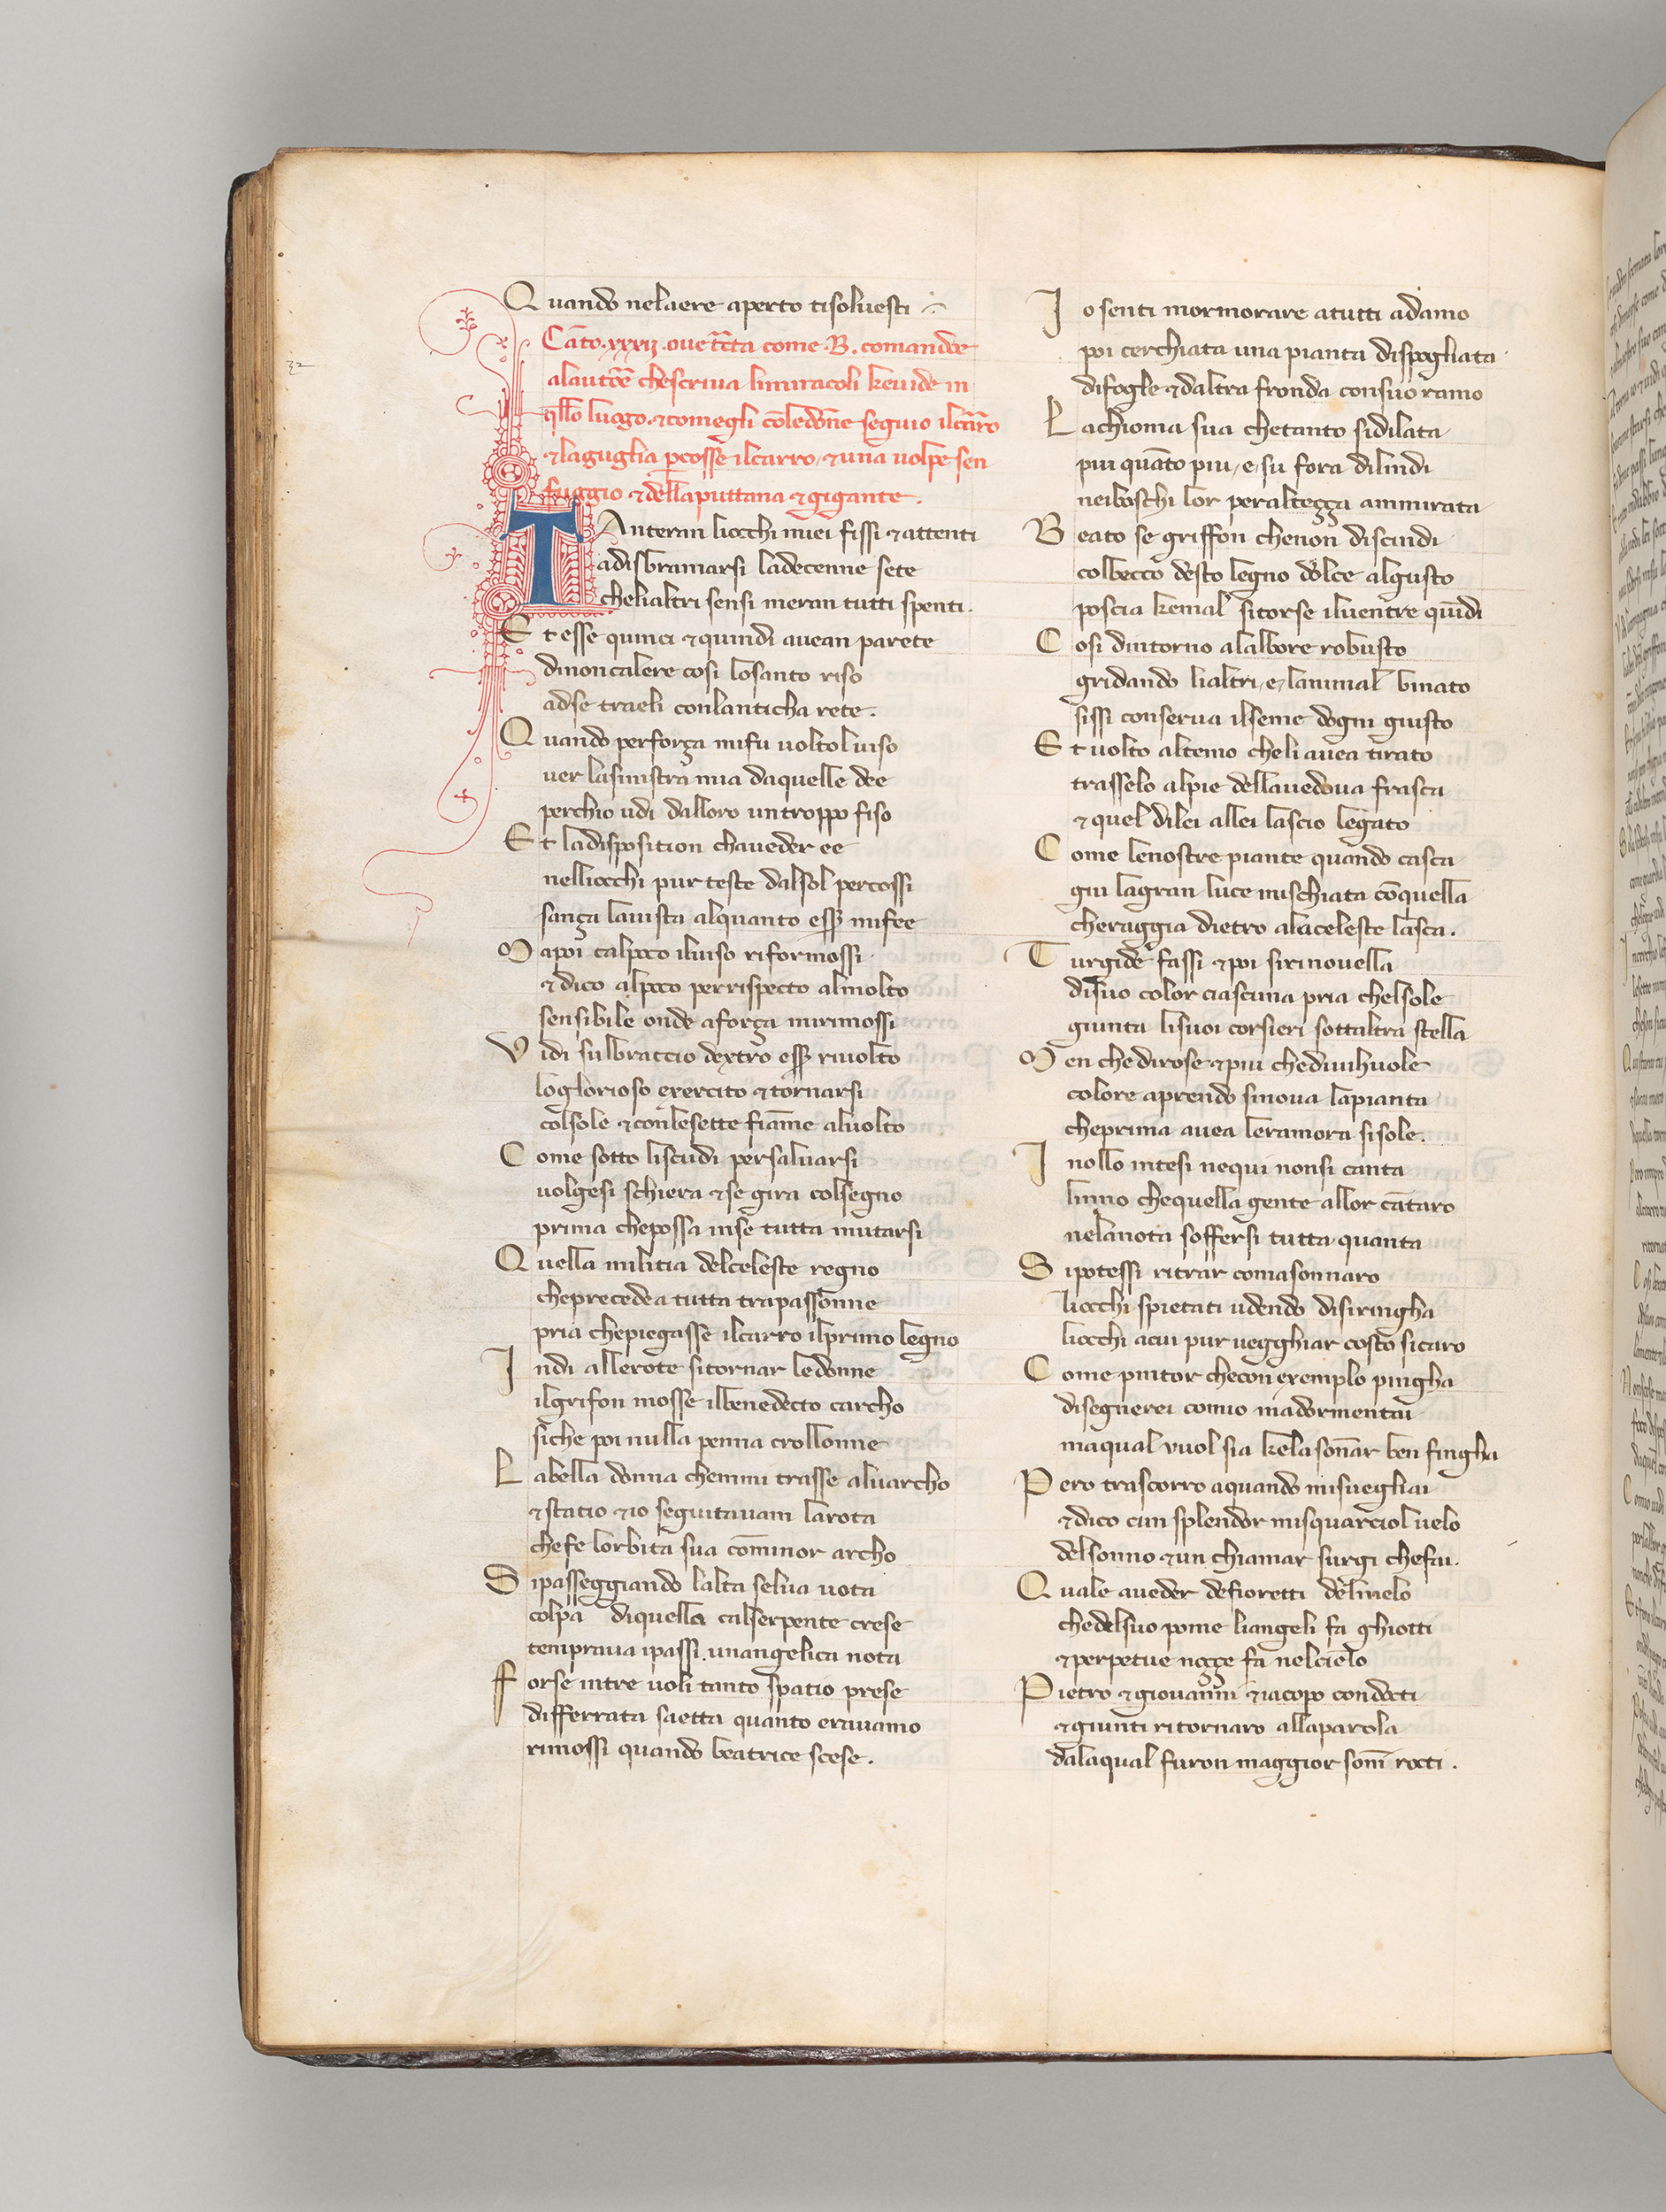 Quando nelaere aperto tisoluesti
Cāto .xxxij. oue tc̄ta come .B. comandoe
alautōe chescriua limiracoli keuide in
q̄llo luogo. ⁊ comegli cōledōne seguio ilcārro
⁊ laguglia pcosse ilcarro ⁊ una uolpe sen
fuggio ⁊ dellaputtana ⁊ gigante.
TAnteran liocchi miei fissi ⁊ attenti
adisbramarsi ladecenne sete
chelialtri sensi meran tutti spenti.
Et esse quinci ⁊ quindi auean parete
dinoncalere cosi losanto riso
adse traeli conlanticha rete.
Quando perforça mifu uoltoluiso
uer lasinistra mia daquelle dee
perchio udi dalloro untroppo fiso
Et ladisposition chaueder ee
nelliocchi pur teste dalsol percossi
sança lauista alquanto ess̄ mifee
Mapoi calpoco iluiso riformossi
⁊ dico alpoco perrispecto almolto
sensibile onde aforça mirimossi
Vidi sulbraccio dextro ess̄ riuolto
loglorioso exercito ⁊ tornarsi
colsole ⁊ conlesette fiāme aluolto
Come sotto liscudi persaluarsi
uolgesi schiera ⁊ se gira colsegno
prima chepossa inse tutta mutarsi
Quella militia delceleste regno
cheprecedea tutta trapassonne
pria chepiegasse ilcarro ilprimo legno
Indi allerote sitornar ledonne
ilgrifon mosse ilbenedecto carcho
siche poi nulla penna crollonne
Labella donna chemmi trasse aluarcho
⁊ statio ⁊ io seguitauam larota
chefe lorbita sua cōminor archo
Si passeggiando lalta selua uota
colpa diquella calserpente crese
tempraua ipassi unangelica nota
Forse intre uoli tanto spatio prese
disferrata saetta quanto erauamo
rimossi quando beatrice scese.
Io senti mormorare atutti adamo
poi cerchiata una pianta dispogliata
difogle ⁊ daltra fronda consuo ramo
Lachioma sua chetanto sidilata
piu quāto piu, e, su fora dilindi
neiboschi lor peralteçça ammirata
Beato se griffon chenon discindi
colbecco desto legno dolce algusto
poscia kemal sitorse iluentre quīdi
Cosi dintorno alalbore robusto
gridando lialtri, e, lanimal binato
sissi conserua ilseme dogni giusto
Et uolto altemo cheli auea tirato
trasselo alpie dellauedoua frasca
⁊ quel dilei allei lascio legato
Come lenostre piante quando casca
giu lagran luce mischiata cōquella
cheraggia dietro alaceleste lasca.
Turgide fassi ⁊ poi sirinouella
disuo color ciascuna pria chelsole
giunta lisuoi corsieri sottaltra stella
Men chedirose ⁊ piu chediuihuole
colore aprendo sinoua lapianta
cheprima auea leramora sisole.
Inollo intesi nequi nonsi canta
linno chequella gente allor cātaro
nelanota soffersi tutta quanta
Sipotessi ritrar comasonnaro
liocchi spietati udendo disiringha
liocchi acui pur uegghiar costo sicaro
Come pintor checon exemplo pingha
disegnerei comio madormentai
maqual vuol sia kelasonar ben fingha
Pero trascorro aquando misuegliai
⁊ dico cun splendor misquarciol uelo
delsonno ⁊ un chiamar surgi chefai.
Quale aueder defioretti delmelo
chedelsuo pome liangeli fa ghiotti
⁊ perpetue noççe fa nelcielo
Pietro ⁊ giouanni ⁊ iacopo condocti
⁊ giunti ritornaro allaparola
dalaqual furon maggior sonni rocti.